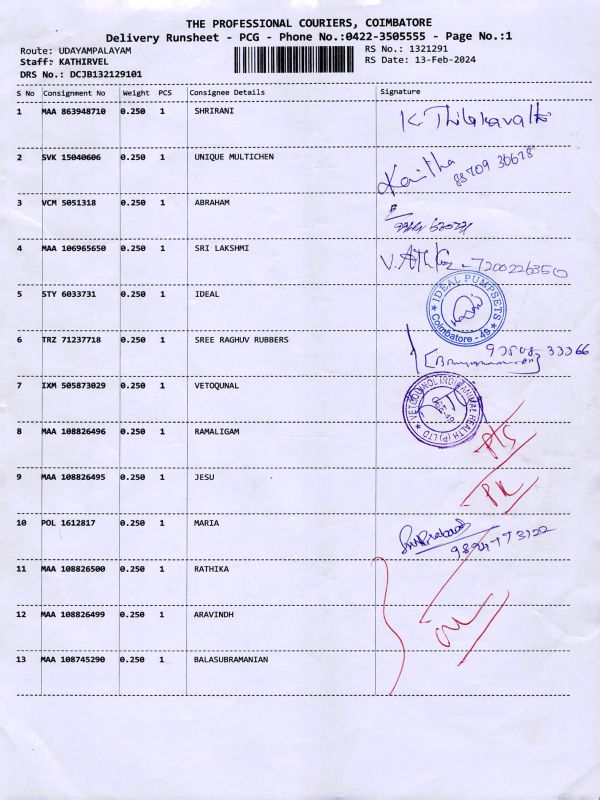 THE PROFESSIONAL COURIERS, COIMBATORE
Delivery Runsheet - PCG - Phone No.:0422-3505555 - Page No.:1
Route: UDAYAMPALAYAM
RS No.: 1321291
Staff: KATHIRVEL
RS Date: 13-Feb-2024
DRS No.: DCJB132129101
S No Consignment No Weight PCS Consignee Details Signature
1 MAA 863948710 0.250 1 SHRIRANI K. Thilakavathi
2 SVK 15040606 0.250 1 UNIQUE MULTICHEN Kavitha
3 VCM 5051318 0.250 1 ABRAHAM
4 MAA 106965650 0.250 1 SRI LAKSHMI 7200226350
5 STY 6033731 0.250 1 IDEAL IDEAL PUMPSETS Coimbatore - 49
6 TRZ 71237718 0.250 1 SREE RAGHUV RUBBERS
7 IXM 505873029 0.250 1 VETOQUNAL VETOQUINOL INDIA ANIMAL HEALTH (P) LTD
8 MAA 108826496 0.250 1 RAMALIGAM
9 MAA 108826495 0.250 1 JESU
10 POL 1612817 0.250 1 MARIA
11 MAA 108826500 0.250 1 RATHIKA
12 MAA 108826499 0.250 1 ARAVINDH
13 MAA 108745290 0.250 1 BALASUBRAMANIAN